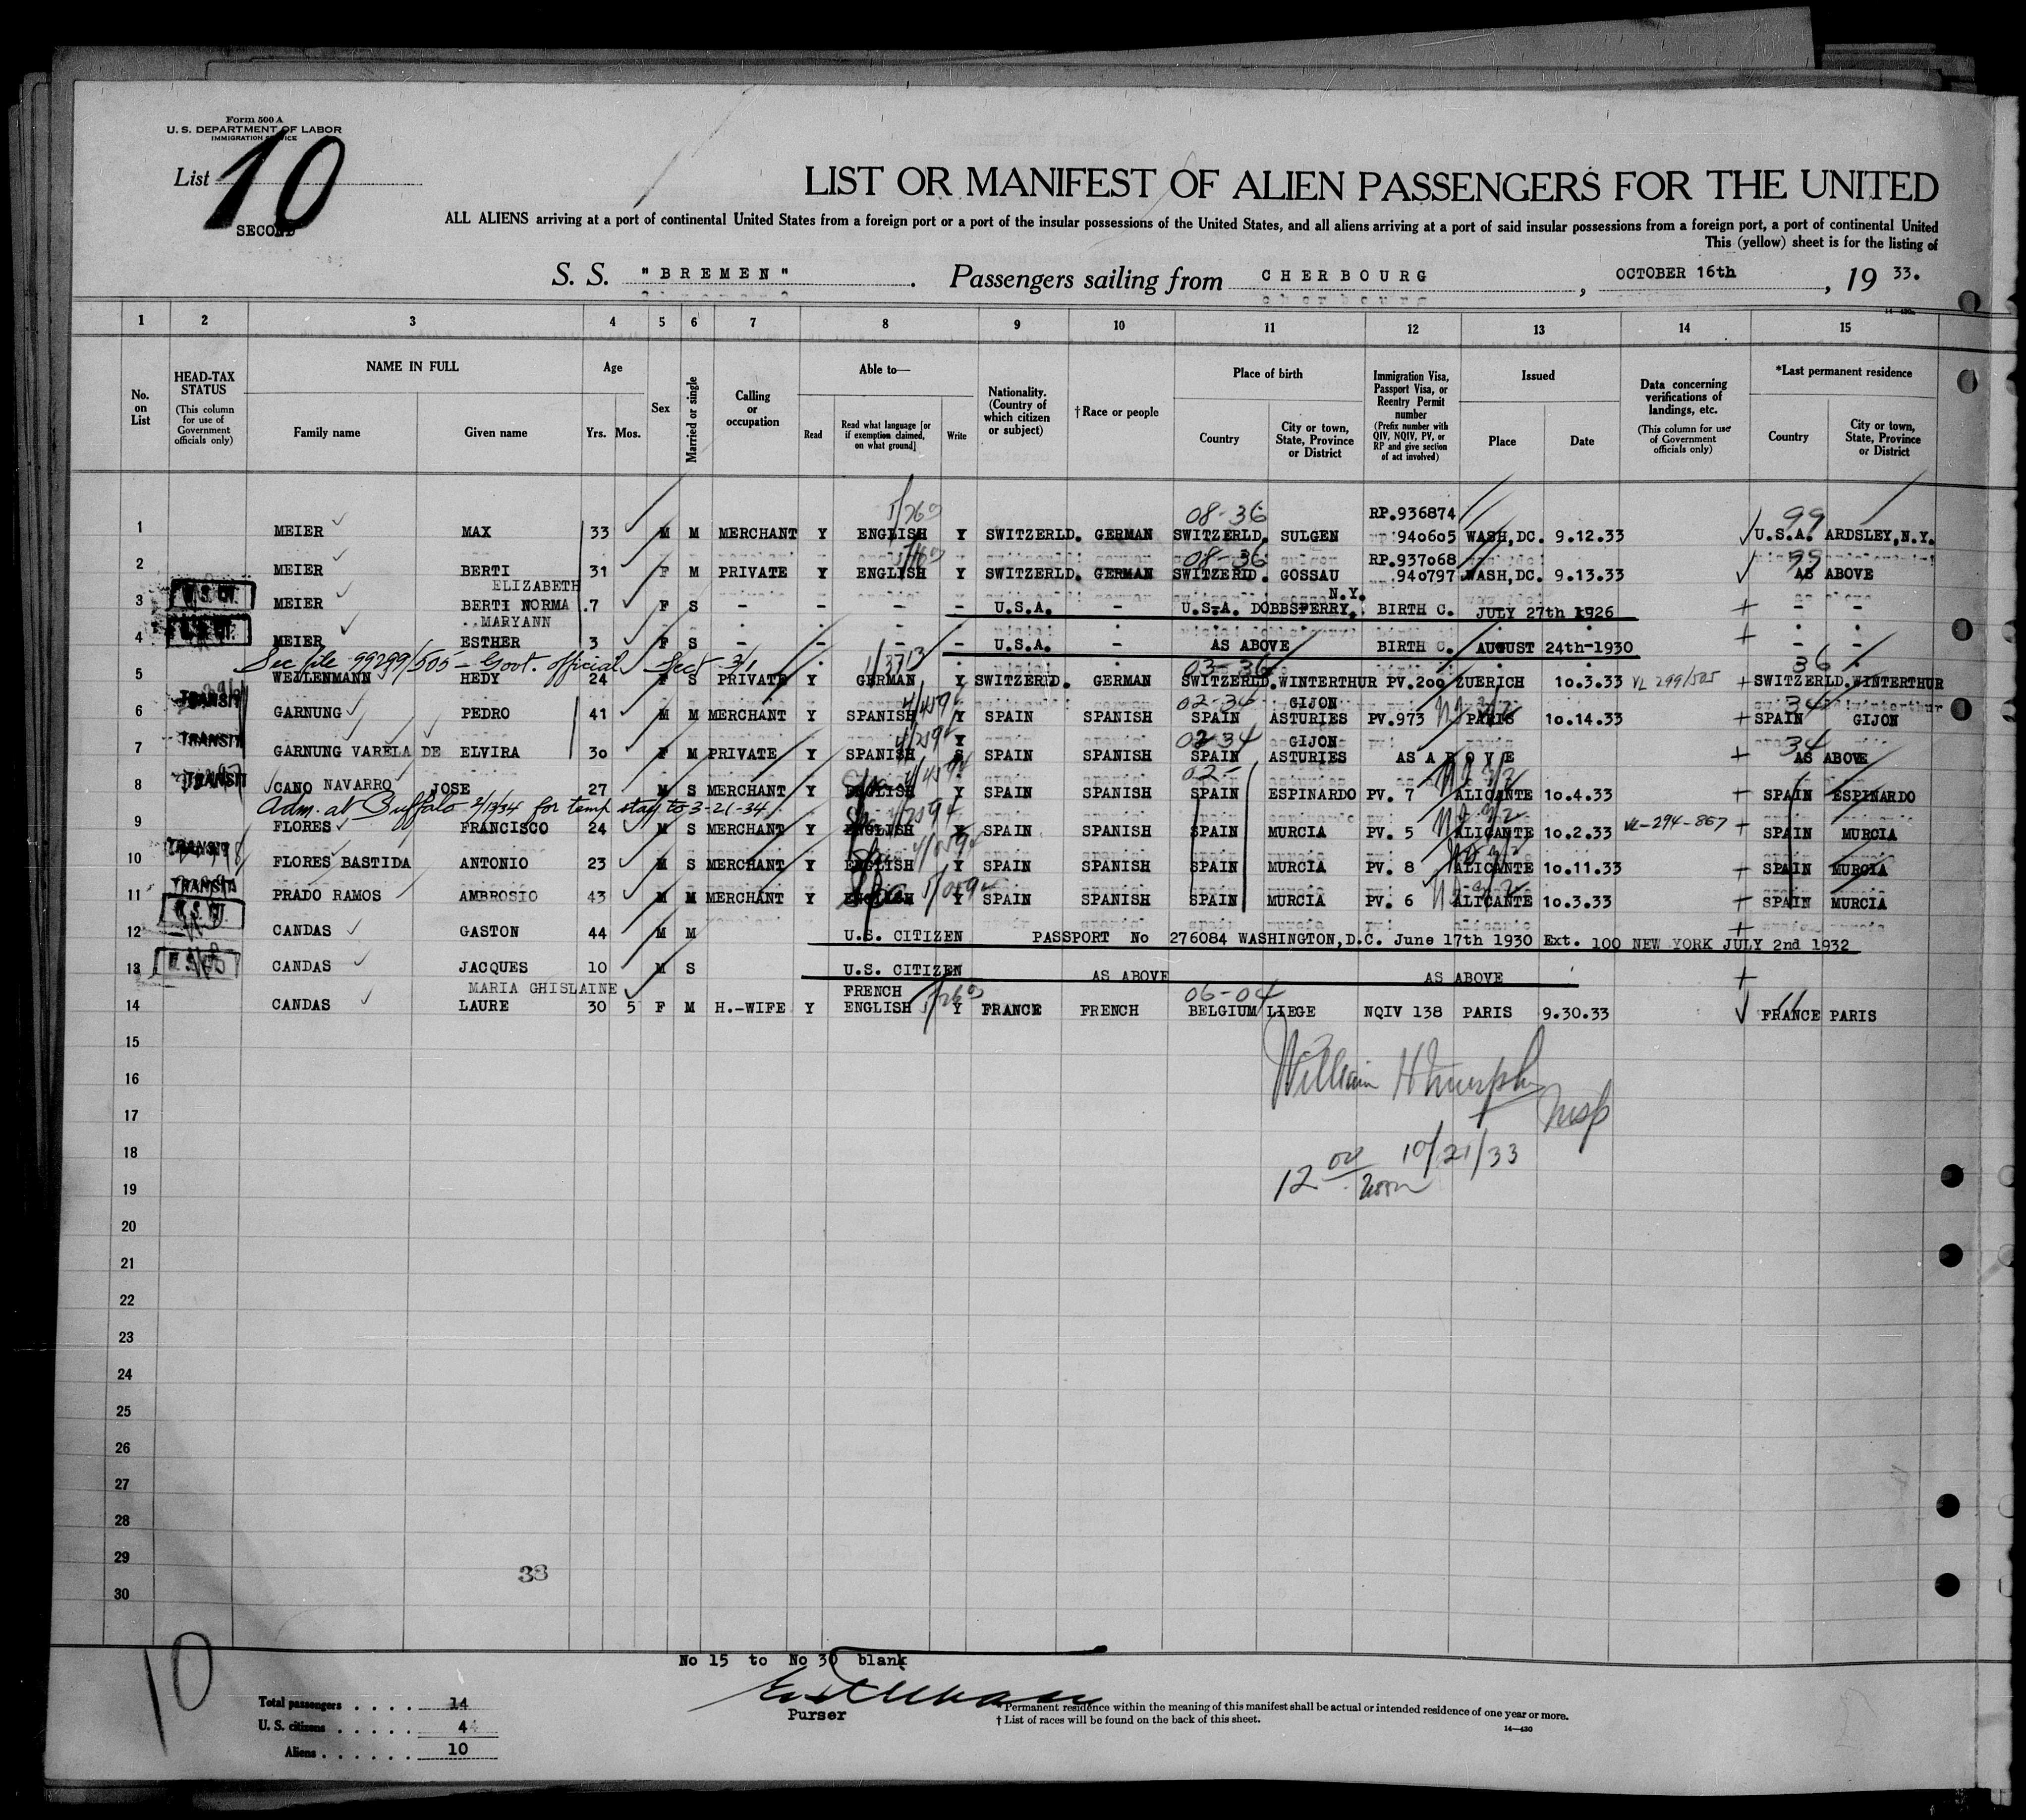 Form 500 A
U. S. DEPARTMENT OF LABOR
IMMIGRATION SERVICE
List 10
SECOND
LIST OR MANIFEST OF ALIEN PASSENGERS FOR THE UNITED
ALL ALIENS arriving at a port of continental United States from a foreign port or a port of the insular possessions of the United States, and all aliens arriving at a port of said insular possessions from a foreign port, a port of continental United
This (yellow) sheet is for the listing of
S. S. "BREMEN" . Passengers sailing from CHERBOURG , OCTOBER 16th , 19 33.
14—430
1 2 3 4 5 6 7 8 9 10 11 12 13 14 15
No. on List
HEAD-TAX STATUS (This column for use of Government officials only)
NAME IN FULL Family name Given name
Age Yrs. Mos.
Sex
Married or single
Calling or occupation
Able to— Read Read what language [or if exemption claimed, on what ground] Write
Nationality. (Country of which citizen or subject)
†Race or people
Place of birth Country City or town, State, Province or District
Immigration Visa, Passport Visa, or Reentry Permit number (Prefix number with QIV, NQIV, PV, or RP and give section of act involved)
Issued Place Date
Data concerning verifications of landings, etc. (This column for use of Government officials only)
*Last permanent residence Country City or town, State, Province or District
08-36 RP.936874 99
1 MEIER MAX 33 M M MERCHANT Y ENGLISH Y SWITZERLD. GERMAN SWITZERLD. SULGEN 940605 WASH,DC. 9.12.33 U.S.A. ARDSLEY,N.Y.
08-36 RP.937068 99
2 MEIER BERTI 31 F M PRIVATE Y ENGLISH Y SWITZERLD. GERMAN SWITZERID. GOSSAU 940797 WASH,DC. 9.13.33 AS ABOVE
ELIZABETH N.Y.
3 MEIER BERTI NORMA 7 F S - - - - U.S.A. - U.S.A. DOBBSFERRY. BIRTH C. JULY 27th 1926 - -
MARYANN
4 MEIER ESTHER 3 F S - - - - U.S.A. - AS ABOVE BIRTH C. AUGUST 24th-1930 - -
Sec file 99299/505 - Govt. official Sect 3/1 03-36 36
5 WEILENMANN HEDY 24 F S PRIVATE Y GERMAN Y SWITZERID. GERMAN SWITZERLD. WINTERTHUR PV.200 ZUERICH 10.3.33 VL 299/505 SWITZERLD. WINTERTHUR
TRANSIT 02-34 GIJON 34
6 GARNUNG PEDRO 41 M M MERCHANT Y SPANISH Y SPAIN SPANISH SPAIN ASTURIES PV.973 PARIS 10.14.33 SPAIN GIJON
TRANSIT Y 02-34 GIJON 34
7 GARNUNG VARELA DE ELVIRA 30 F M PRIVATE Y SPANISH S SPAIN SPANISH SPAIN ASTURIES AS ABOVE AS ABOVE
TRANSIT 02-
8 CANO NAVARRO JOSE 27 M S MERCHANT Y ENGLISH Y SPAIN SPANISH SPAIN ESPINARDO PV. 7 ALICANTE 10.4.33 SPAIN ESPINARDO
Adm. at Buffalo 2/13/34 for temp stay to 3-21-34
9 FLORES FRANCISCO 24 M S MERCHANT Y ENGLISH Y SPAIN SPANISH SPAIN MURCIA PV. 5 ALICANTE 10.2.33 VL-294-867 SPAIN MURCIA
TRANSIT
10 FLORES BASTIDA ANTONIO 23 M S MERCHANT Y ENGLISH Y SPAIN SPANISH SPAIN MURCIA PV. 8 ALICANTE 10.11.33 SPAIN MURCIA
TRANSIT
11 PRADO RAMOS AMBROSIO 43 M M MERCHANT Y ENGLISH Y SPAIN SPANISH SPAIN MURCIA PV. 6 ALICANTE 10.3.33 SPAIN MURCIA
12 CANDAS GASTON 44 M M U.S. CITIZEN PASSPORT No 276084 WASHINGTON,D.C. June 17th 1930 Ext. 100 NEW YORK JULY 2nd 1932
13 CANDAS JACQUES 10 M S U.S. CITIZEN AS ABOVE AS ABOVE
MARIA GHISLAINE FRENCH 06-04
14 CANDAS LAURE 30 5 F M H.-WIFE Y ENGLISH Y FRANCE FRENCH BELGIUM LIEGE NQIV 138 PARIS 9.30.33 FRANCE PARIS
15
16 William H Murphy
17 Insp
18 10/21/33
19 12 00 noon
20
21
22
23
24
25
26
27
28
29
38
30
10
No 15 to No 30 blank
Purser
Total passengers . . . . 14
U. S. citizens . . . . . 4
Aliens . . . . . . 10
* Permanent residence within the meaning of this manifest shall be actual or intended residence of one year or more.
† List of races will be found on the back of this sheet.
14—430